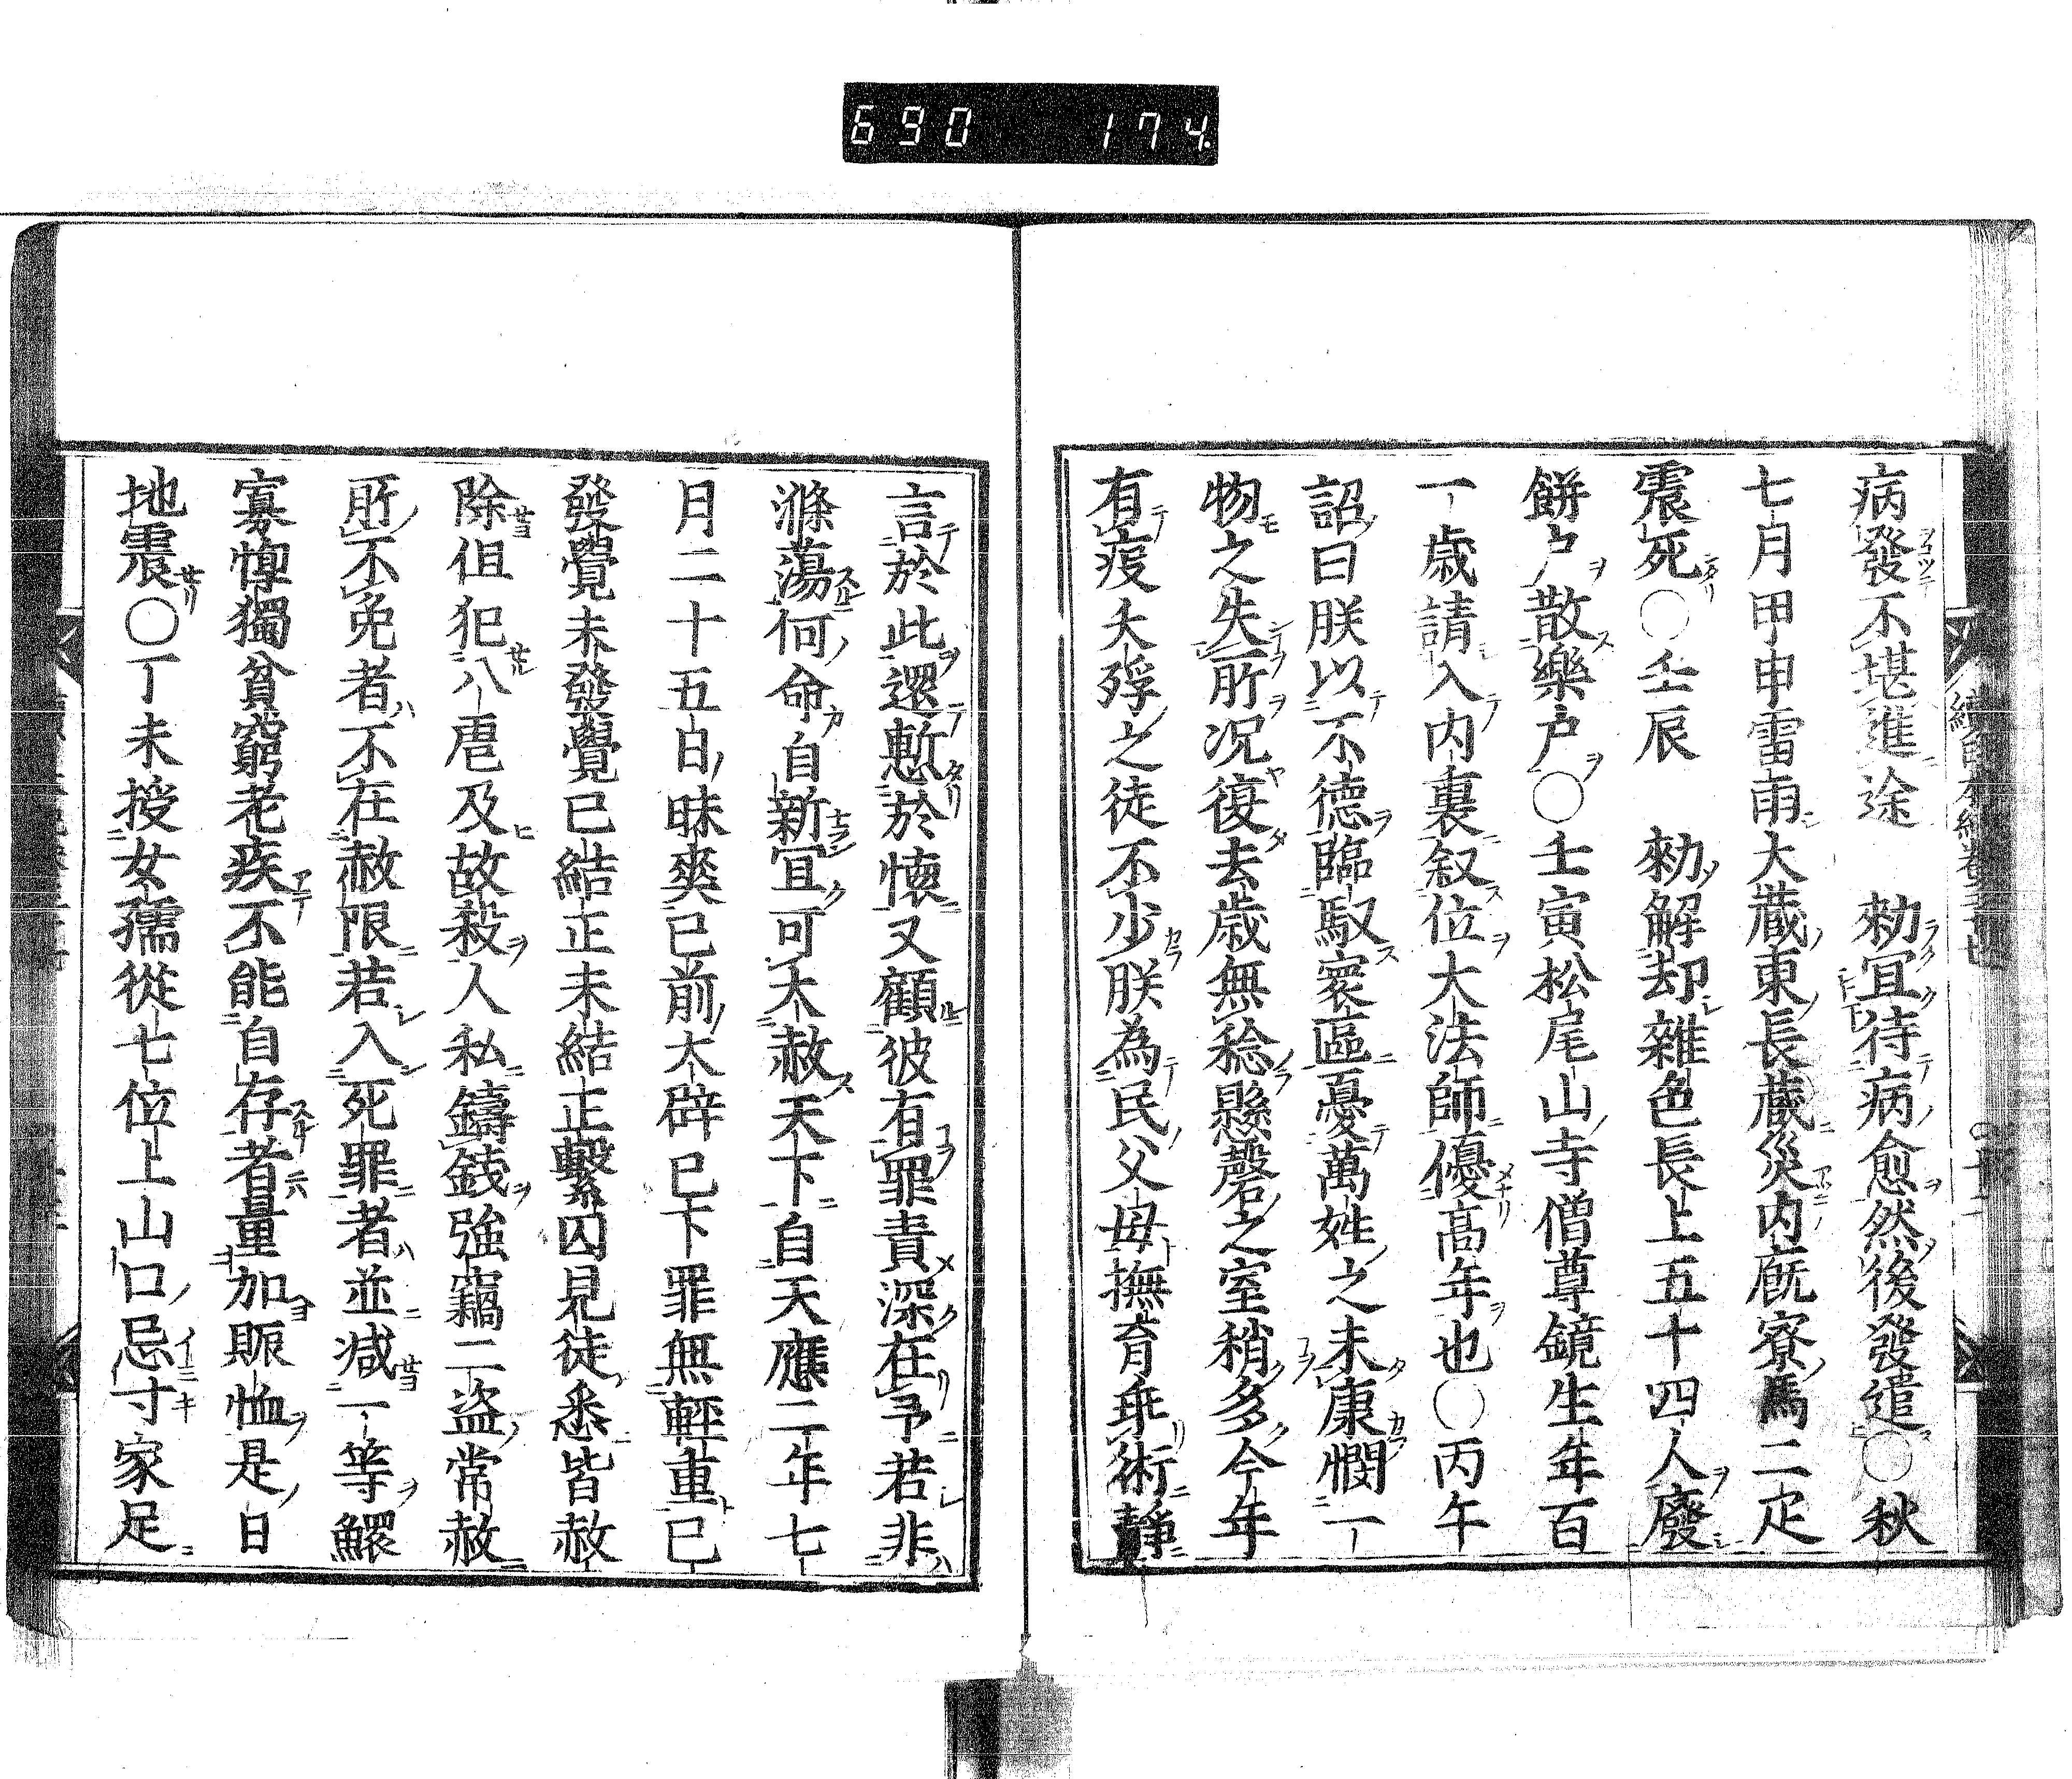 690 174
病發不堪進途 勑宜待病愈然後發遣○秋
七月甲申雷雨大藏東長藏災内廐寮馬二疋
震死○壬辰 勑解却雜色長上五十四人廢
餅戸散樂戸○壬寅松尾山寺僧尊鏡生年百
一歳請入内裏叙位大法師優高年也○丙午
詔曰朕以不德臨馭寰區憂萬姓之未康憫一
物之失所况復去歳無稔懸磬之室稍多今年
有疫夭殍之徒不少朕為民父母撫育乖術靜
言於此還慙於懷又顧彼有罪責深在予若非
滌蕩何命自新宜可大赦天下自天應二年七
月二十五日昧爽已前大辟已下罪無輕重已
發覺未發覺已結正未結正繫囚見徒悉皆赦
除但犯八虐及故殺人私鑄錢強竊二盗常赦
所不免者不在赦限若入死罪者並減一等鰥
寡惸獨貧窮老疾不能自存者量加賑恤是日
地震○丁未授女孺從七位上山口忌寸家足